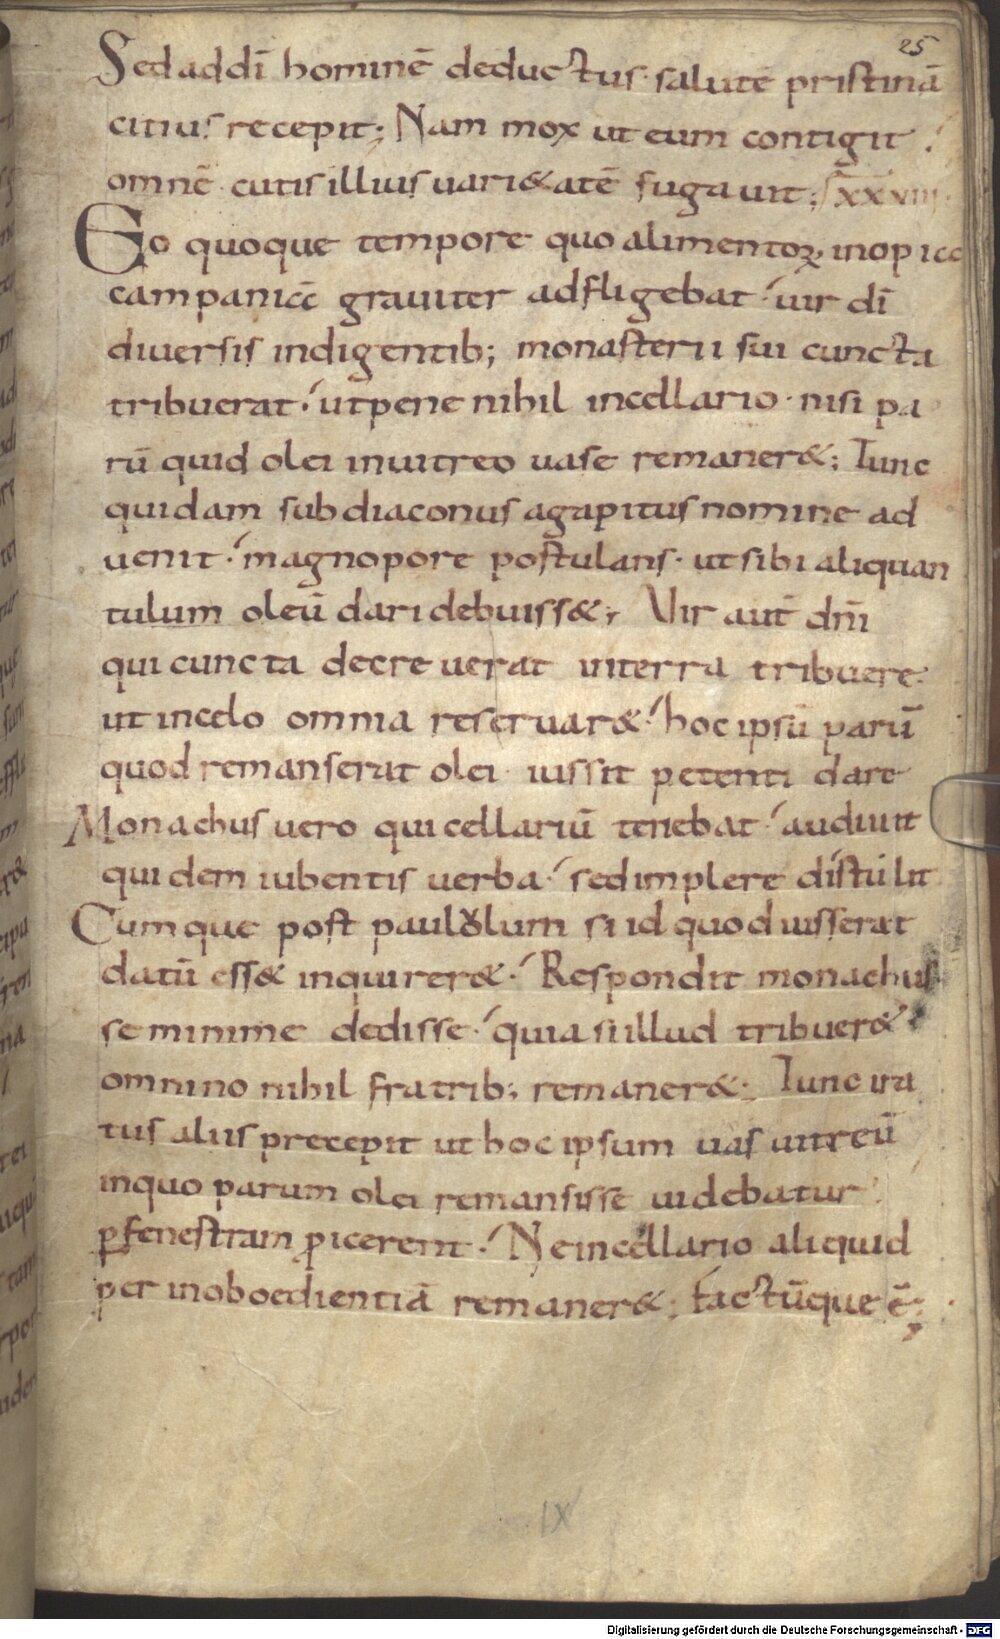 25
Sed ad dī hominē deductus· salutē pristinā
citius recepit; Nam mox ut eum contigit
omnē cutis illius uari&atē fugauit; XXVIII·
Eo quoque tempore quo alimentoꝝ inopia
campaniā grauiter adfligebat· uir dī
diuersis indigentib; monasterii sui cuncta
tribuerat· ut pene nihil in cellario· nisi pa
rū quid olei in uitreo uase remaner&; Tunc
quidam subdiaconus agapitus nomine ad
uenit· magnopore postulans· ut sibi aliquan
tulum oleū dari debuiss&; Uir aut̄ dn̄i
qui cuncta decreuerat in terra tribuere·
ut in celo omnia reseruar&· hoc ipsū parū
quod remanserat olei iussit petenti dare
Monachus uero qui cellariū tenebat· audiuit
quidem iubentis uerba· sed implere distulit
Cumque post paululum si id quod iusserat
datū ess& inquirer&· Respondit monachus
se minime dedisse· quia si illud tribuer&
omnino nihil fratrib; remaner&; Tunc ira
tus aliis precepit ut hoc ipsum uas uitreū
in quo parum olei remansisse uidebatur
ꝑ fenestram ꝓicerent· Ne in cellario aliquid
per inoboedientiā remaner&; factūque ē;
IX
Digitalisierung gefördert durch die Deutsche Forschungsgemeinschaft - DFG